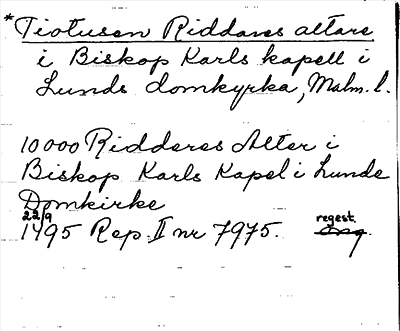 *Tiotusen Riddares altare
i Biskop Karls kapell i
Lunds domkyrka, Malm. l.
10000 Ridderes Alter i
Biskop Karls Kapel i Lunde
Domkirke
22/9
1495 Rep. II nr 7975.
regest.
Orig.